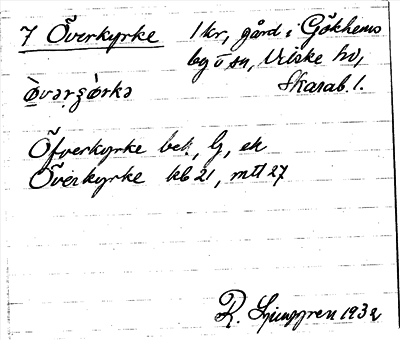 7 Överkyrke 1 kr, gård i Gökhems
by o sn, Vilske hd,
Skarab. l.
Öfverkyrke bek., G, ek
Överkyrke kb 21, mtl 27
R. Ljunggren 1932